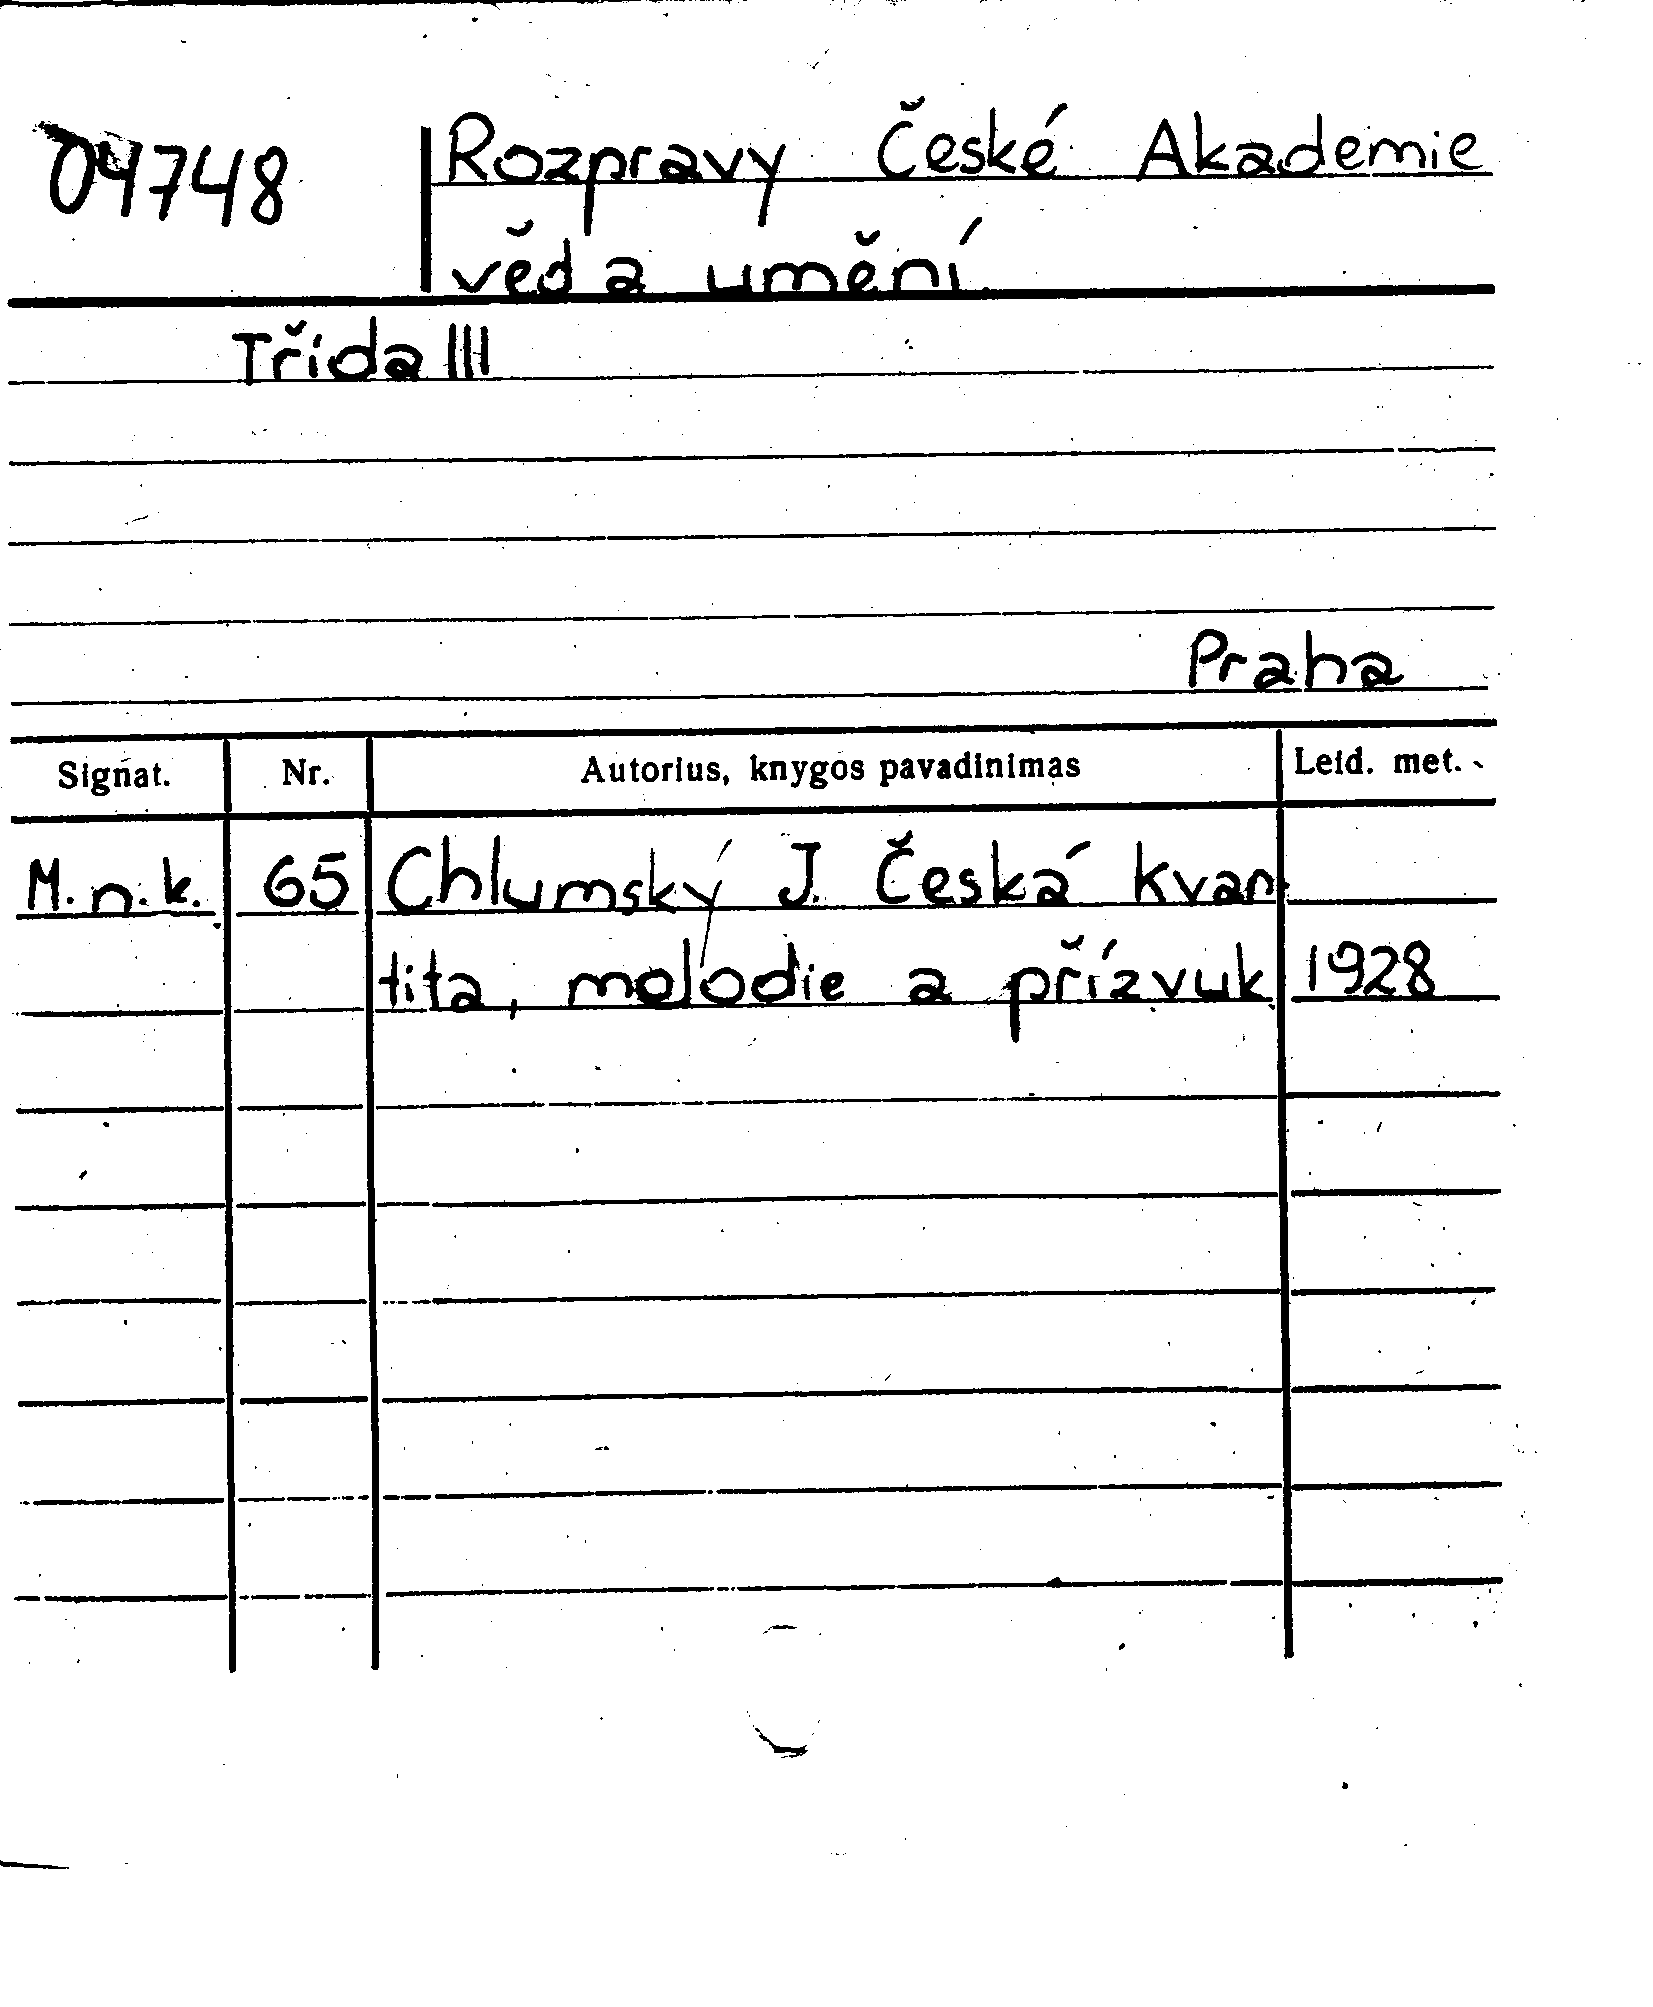 04748 Rozpravy České Akademie
věd a umění
Třída III
Praha
Signat. Nr. Autorius, knygos pavadinimas Leid. met.
M. n. k. 65 Chlumský J. Česká kvan
tita, melodie a přízvuk 1928